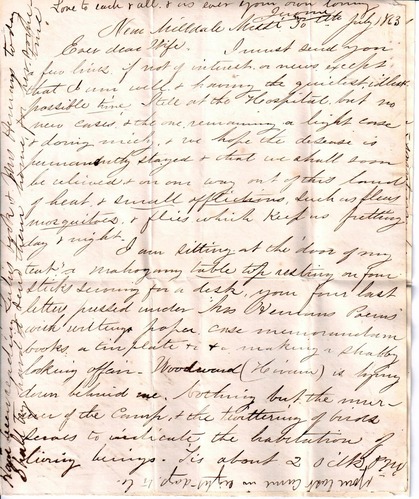 Love to each & all, & as ever your own loving
Near Milldale July 1863
Ever dear Wife. I must send you
a few lines, if not of interest or news except
that I am well & having the quietest, illest
possible time. Still at the Hospital but no
new cases & the one remaining a light case
& doing nicely, & we hope the disease is
permanently stayed & that we shall soon
be relieved & on our way out of this land
of heat, & small afflictions, such as fleas
mosquitoes, & flies which keep us fretting
day & night.
I am sitting at the door of my
tent, a mahogany table top resting on four
sticks serving for a desk, your four last
letters pressed under Mrs Hemans Poems
with writing paper case memorandum
books, a tin plate & & making a shabby
looking affair. Woodward is lying
down behind me, Nothing but the mur-
mur of the Camp, & the twittering of birds
serves to indicate the habitation of
living beings. Tis about 2 o'clk P.M.